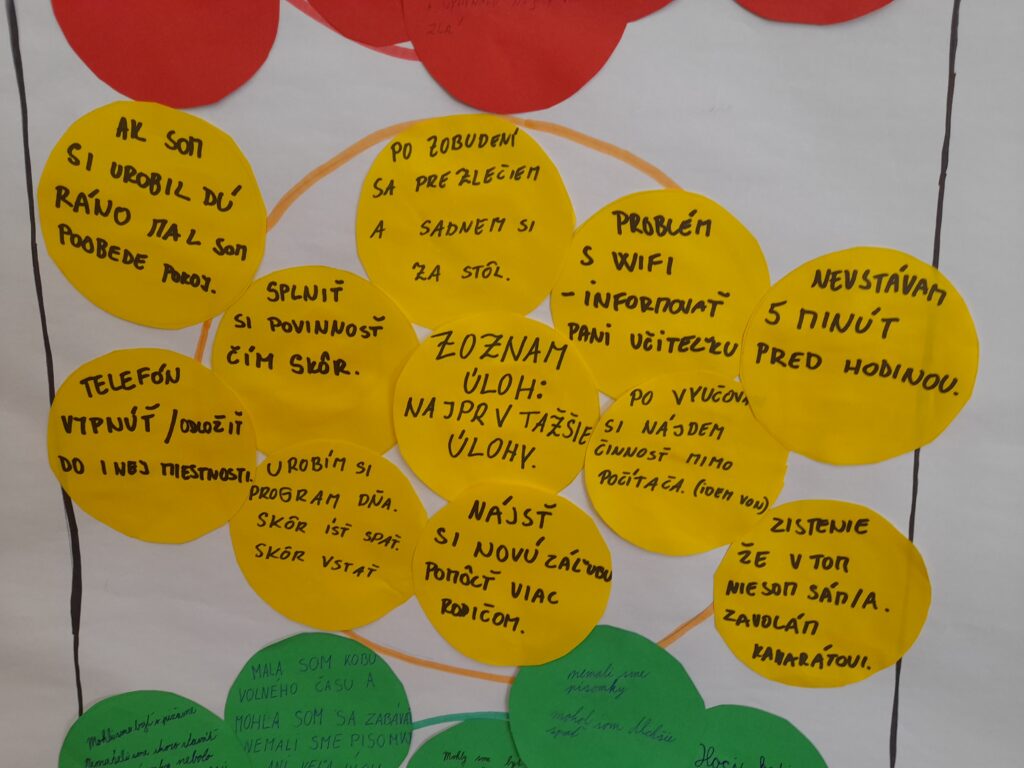 ZLÁ
AK SOM
SI UROBIL DÚ
RÁNO MAL SOM
POOBEDE POKOJ.
PO ZOBUDENÍ
SA PREZLEČIEM
A SADNEM SI
ZA STÔL.
PROBLÉM
S WIFI
- INFORMOVAŤ
PANI UČITEĽKU
NEVSTÁVAM
5 MINÚT
PRED HODINOU.
SPLNIŤ
SI POVINNOSŤ
ČÍM SKÔR.
ZOZNAM
ÚLOH:
NAJPRV ŤAŽŠIE
ÚLOHY.
TELEFÓN
VYPNÚŤ / ODLOŽIŤ
DO INEJ MIESTNOSTI.
PO VYUČOVA
SI NÁJDEM
ČINNOSŤ MIMO
POČÍTAČA. (IDEM VON)
UROBÍM SI
PROGRAM DŇA.
SKÔR ÍSŤ SPAŤ.
SKÔR VSTAŤ
NÁJSŤ
SI NOVÚ ZÁĽUBU
POMÔCŤ VIAC
RODIČOM.
ZISTENIE
ŽE V TOM
NIESOM SÁM/A.
ZAVOLÁM
KAMARÁTOVI.
MALA SOM KOBU
VOLNEHO ČASU A
MOHLA SOM SA ZABÁVA
NEMALI SME PISOMKY
nemali sme
písomky
mohol som dlhšie
spať
Mohli sme byť v pyžame
Nemuseli sme skoro vstávať
Mohly sme byť